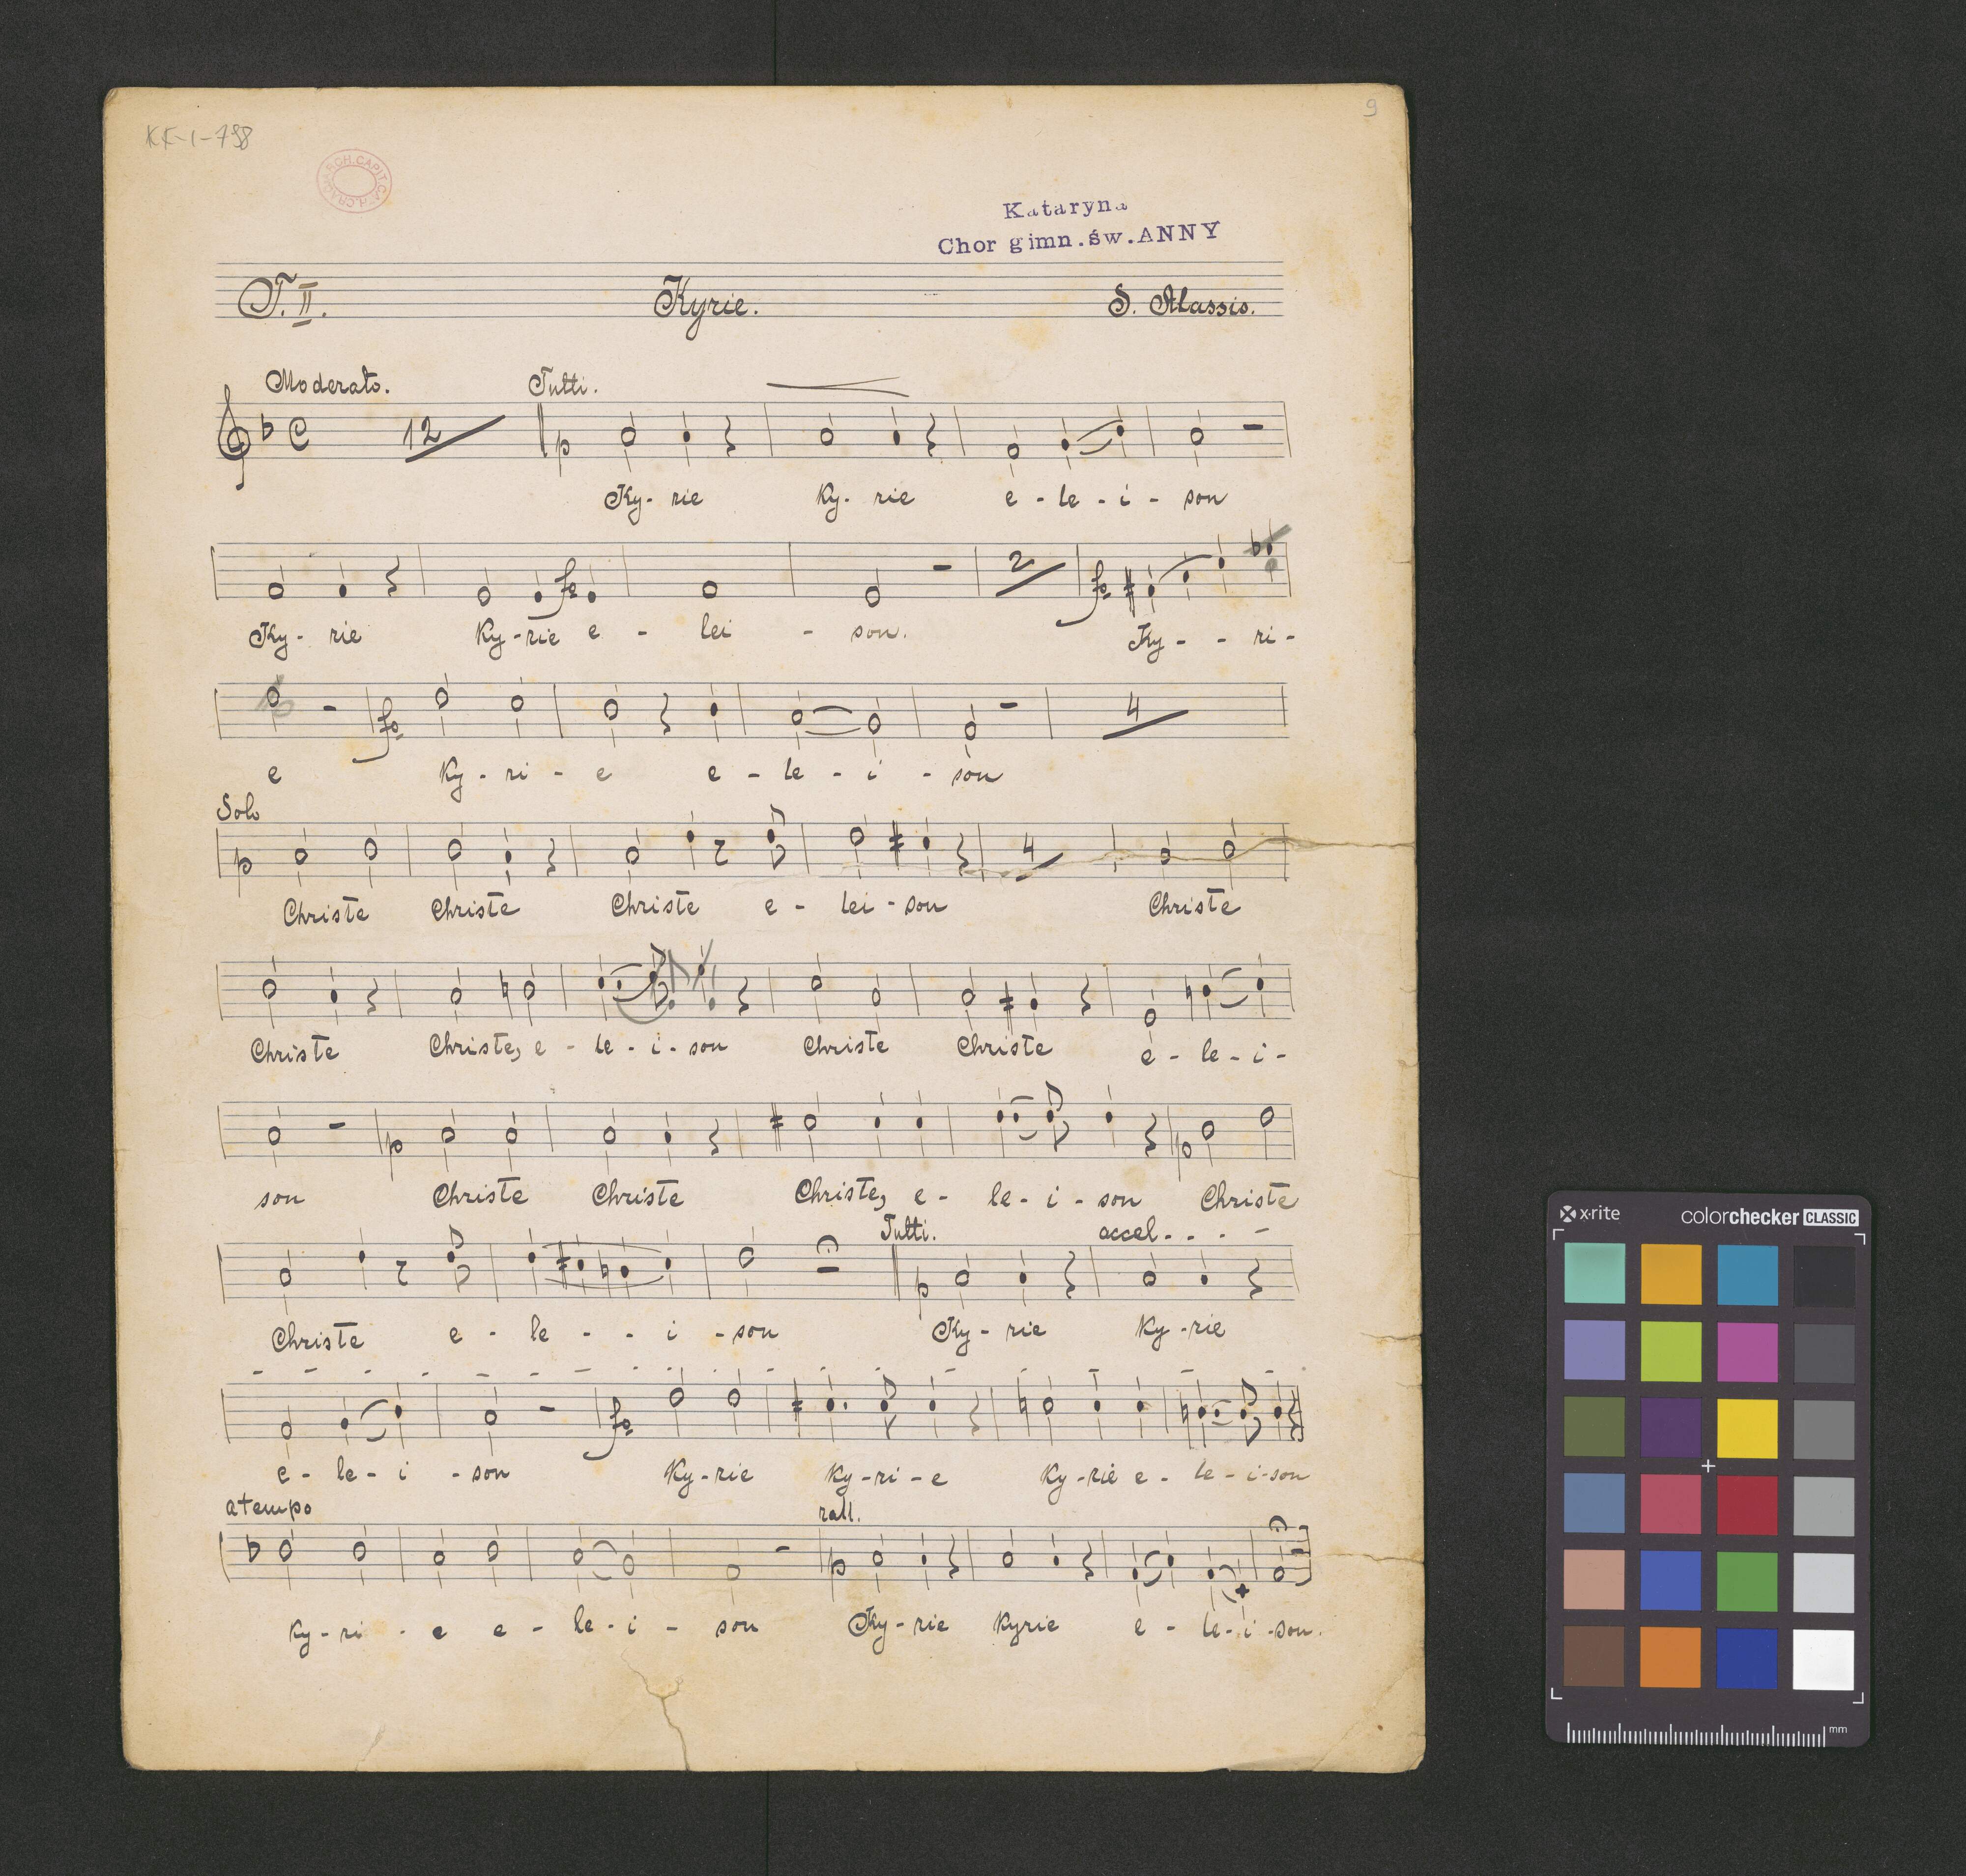 9
KK-I-798
ARCH. CAPIT. CATH. CRAC.
Kataryna
Chor gimn.św.ANNY
T. II. Kyrie. S.
Moderato. Tutti.
12 p
Ky- rie Ky- rie e - le - i - son
2
Ky- rie Ky-rie e - lei - son. Ky - - ri-
4
e Ky - ri - e e - le - i - son
Solo
p 4
Christe Christe Christe e - lei - son Christe
Christe Christe, e - le - i - son Christe Christe e - le - i -
p p
son Christe Christe Christe, e - le - i - son Christe
Tutti. accel. - - -
p
Christe e - le - - i - son Ky - rie Ky - rie
e - le - i - son Ky-rie Ky-ri-e Ky-rie e - le - i-son
a tempo rall.
p
Ky-ri - e e - le - i - son Ky-rie Kyrie e - le - i -son.
x·rite colorchecker CLASSIC
mm